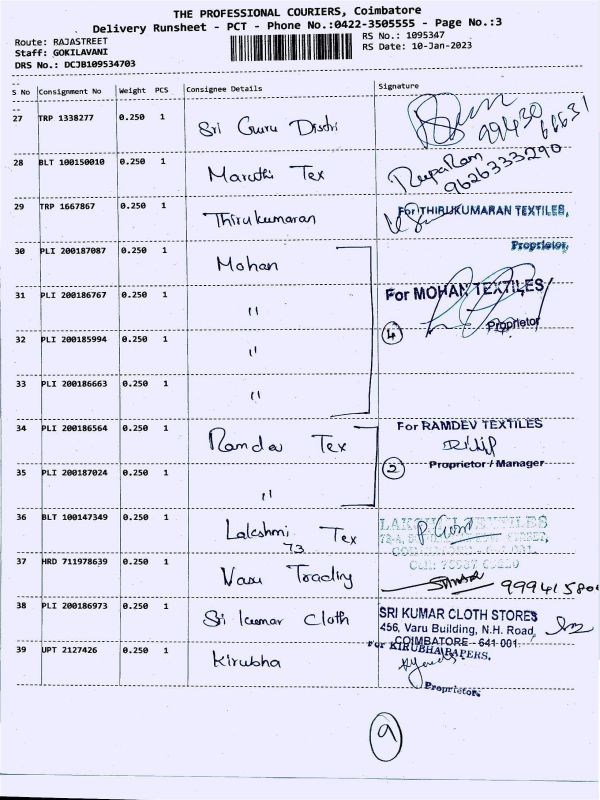 THE PROFESSIONAL COURIERS, Coimbatore
Delivery Runsheet - PCT - Phone No.:0422-3505555 - Page No.:3
Route: RAJASTREET
Staff: GOKILAVANI
DRS No.: DCJB109534703
RS No.: 1095347
RS Date: 10-Jan-2023
S No Consignment No Weight PCS Consignee Details Signature
27 TRP 1338277 0.250 1 Sri Guru Distri
99430 66631
28 BLT 100150010 0.250 1 Maruthi Tex RupaRam
9626333290
29 TRP 1667867 0.250 1 Thirukumaran For THIRUKUMARAN TEXTILES,
Proprietor,
30 PLI 200187087 0.250 1 Mohan
31 PLI 200186767 0.250 1 " For MOHAN TEXTILES
Proprietor
32 PLI 200185994 0.250 1 " 4
33 PLI 200186663 0.250 1 "
34 PLI 200186564 0.250 1 Ramdev Tex For RAMDEV TEXTILES
Dilip
35 PLI 200187024 0.250 1 " 2 Proprietor / Manager
36 BLT 100147349 0.250 1 Lakshmi Tex LAKSHMI TEXTILES
73
37 HRD 711978639 0.250 1 Vasu Trading
999415800
38 PLI 200186973 0.250 1 Sri kumar Cloth SRI KUMAR CLOTH STORES
456, Varu Building, N.H. Road,
COIMBATORE - 641 001.
39 UPT 2127426 0.250 1 Kirubha For KIRUBHA PAPERS,
Proprietor.
9